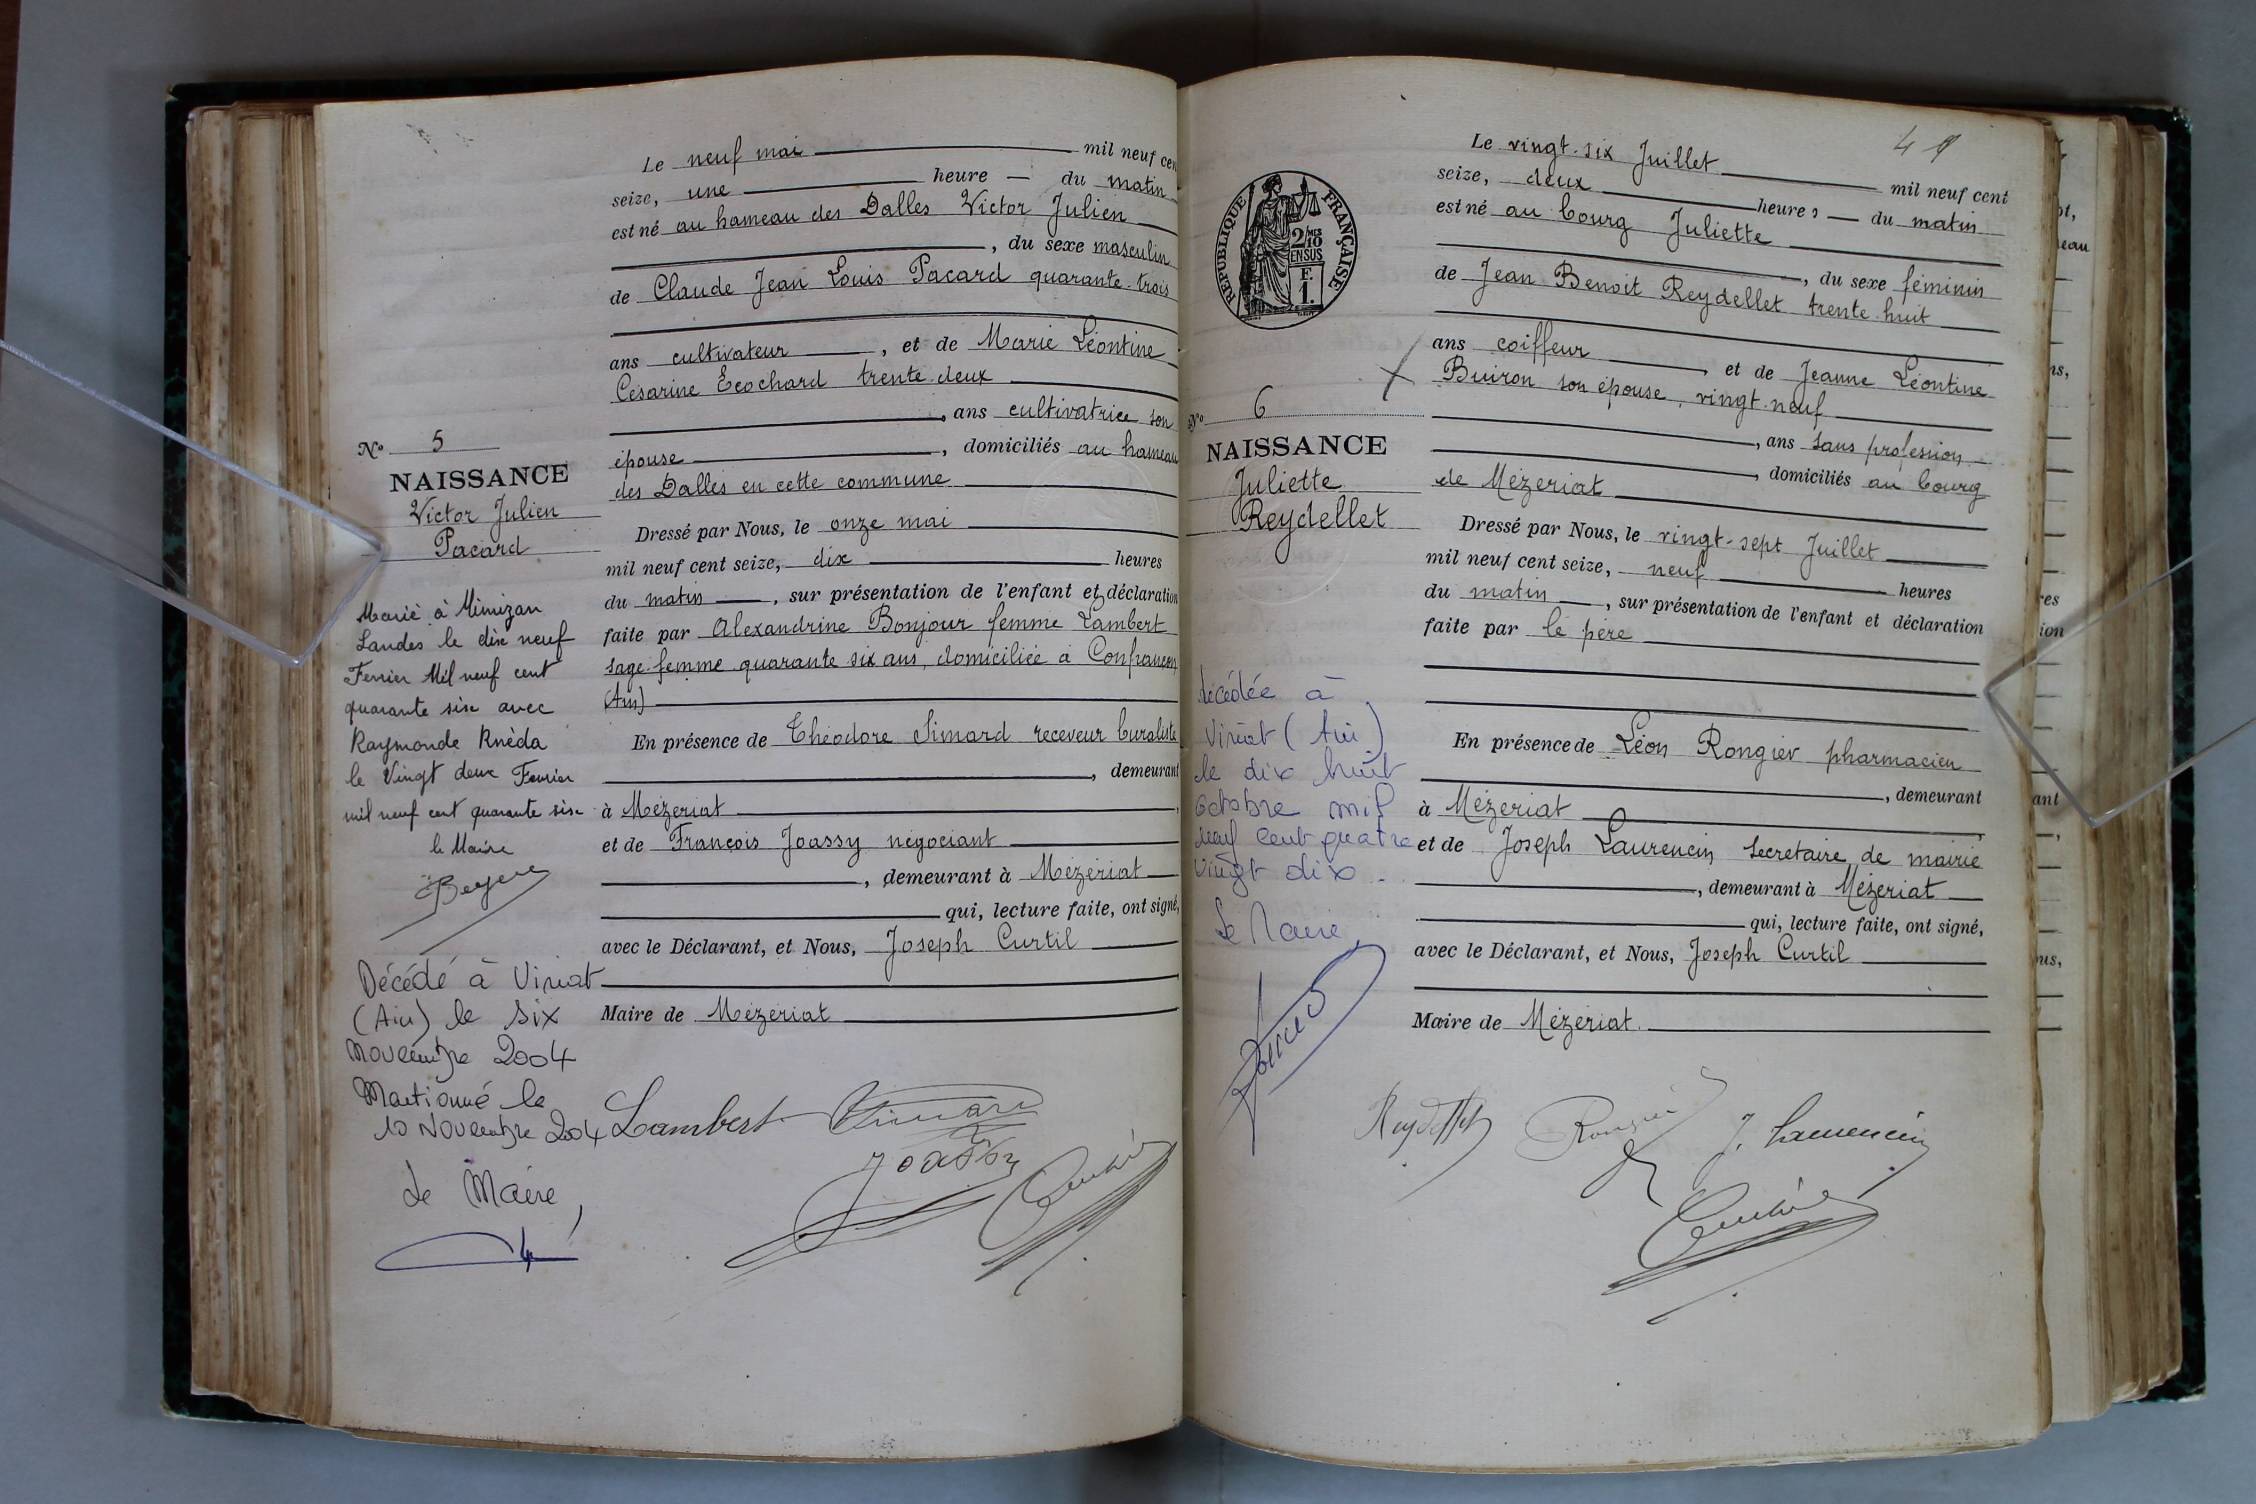 Le neuf mai mil neuf cen
seize, une heure du matin
est né au hameau des Dalles Victor Julien
, du sexe masculin
de Claude Jean Louis Pacard quarante-trois
ans cultivateur , et de Marie Léontine
Césarine Ecochard trente-deux
, ans cultivatrice son
épouse , domiciliés au hameau
des Dalles en cette commune
Nº 5
NAISSANCE
Victor Julien
Pacard
Dressé par Nous, le onze mai
mil neuf cent seize, dix heures
du matin , sur présentation de l'enfant et déclaration
faite par Alexandrine Bonjour femme Lambert
sage-femme quarante six ans, domiciliée à Confrançon
(Ain)
En présence de Théodore Simard receveur buraliste
, demeurant
à Mézériat ,
et de François Joassy négociant
, demeurant à Mézériat
qui, lecture faite, ont signé,
avec le Déclarant, et Nous, Joseph Curtil
Maire de Mézériat
Marié à Mimizan
Landes le dix neuf
Fevrier Mil neuf cent
quarante six avec
Raymonde Knèda
le Vingt deux Fevrier
mil neuf cent quarante six
le Maire
Décédé à Viriat
(Ain) le six
novembre 2004
Mentionné le
10 Novembre 2004
Le Maire,
Lambert
Simard
Joassy
Curtil
41
Le vingt-six Juillet mil neuf cent
seize, deux heures du matin
est né au bourg Juliette
, du sexe féminin
de Jean Benoit Reydellet trente-huit
ans coiffeur , et de Jeanne Léontine
Buiron son épouse, vingt-neuf
, ans sans profession
, domiciliés au bourg
de Mézériat
RÉPUBLIQUE FRANÇAISE
2/10 MES
EN SUS
F.
1.
Nº 6
NAISSANCE
Juliette
Reydellet
Dressé par Nous, le vingt-sept Juillet
mil neuf cent seize, neuf heures
du matin , sur présentation de l'enfant et déclaration
faite par le père
En présence de Léon Rongier pharmacien
, demeurant
à Mézériat ,
et de Joseph Laurencin secrétaire de mairie
, demeurant à Mézériat
qui, lecture faite, ont signé,
avec le Déclarant, et Nous, Joseph Curtil
Maire de Mézériat.
décédée à
Viriat (Ain)
le dix huit
octobre mil
neuf cent quatre
vingt dix.
Le Maire
Reydellet
Rongier
J. Laurencin
Curtil